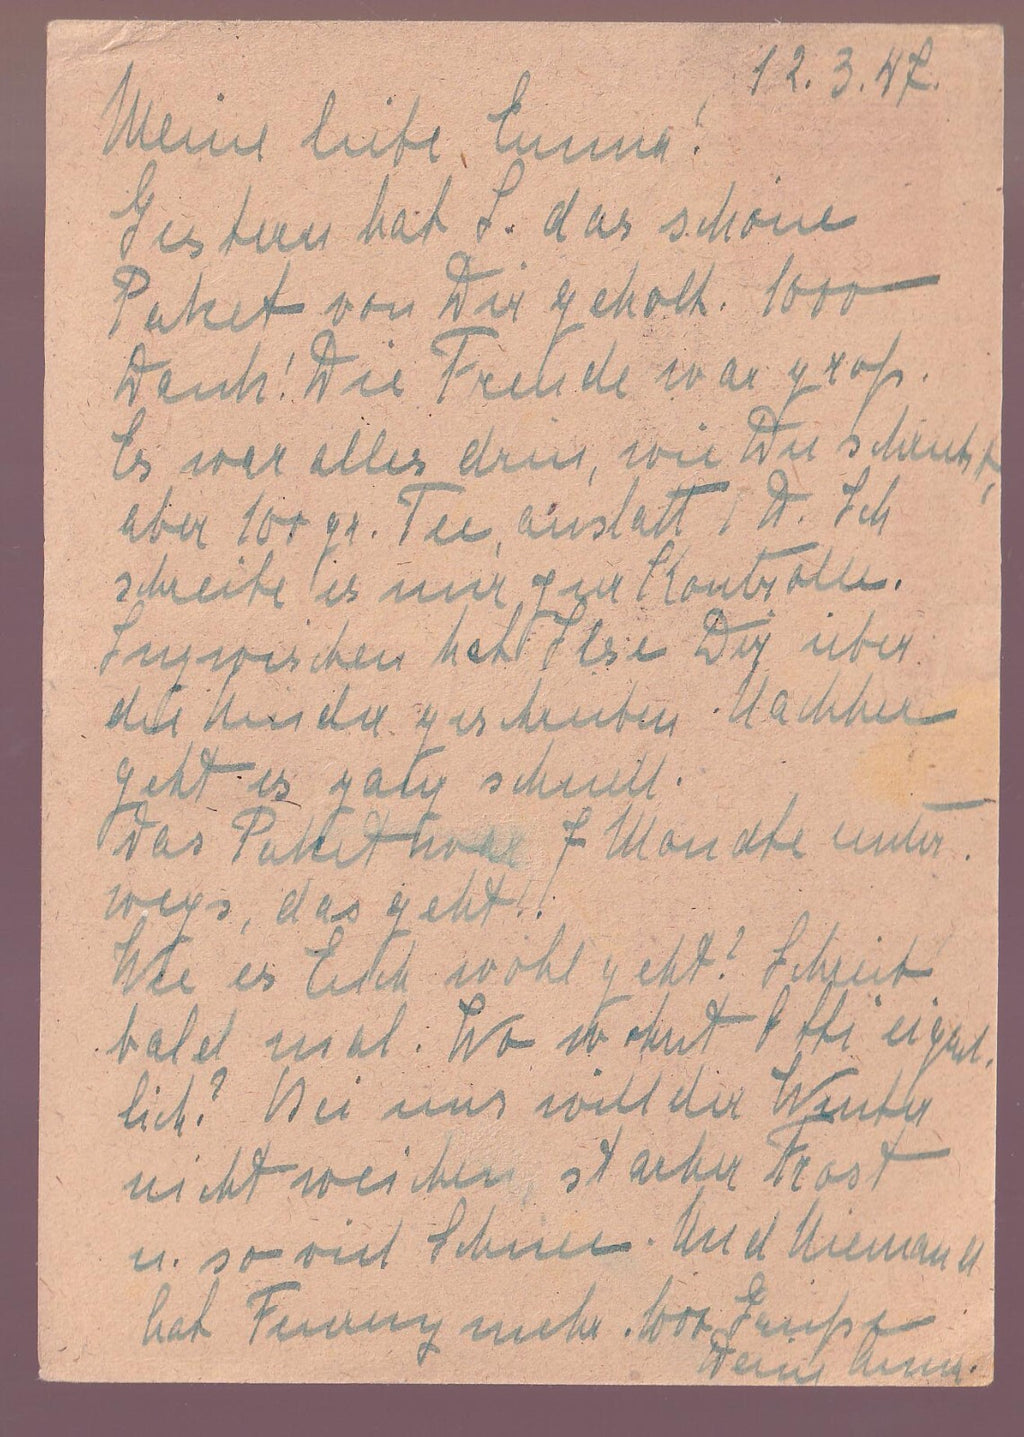 12.3.47.
Meine liebe Emma!
Gestern hat I. das schöne
Paket von Dir geholt. 1000
Dank! Die Freude war groß.
Es war alles drin, wie Du schreibst,
aber 100 gr. Tee, anstatt 1 Ich
schreibe es nur zur Kontrolle.
Inzwischen hat Ilse Dir über
die Kinder geschrieben. Nachher
geht es ganz schnell.
Das Paket war 7 Monate unter-
wegs, das geht!!
Wie es Euch wohl geht? Schreib
bald mal. Wo wohnt Otti eigent-
lich? Bei uns will der Winter
nicht weichen, starker Frost
u. so viel Schnee. Und Niemand
hat Feurung mehr. 1000 Grüße
Deine Anna.